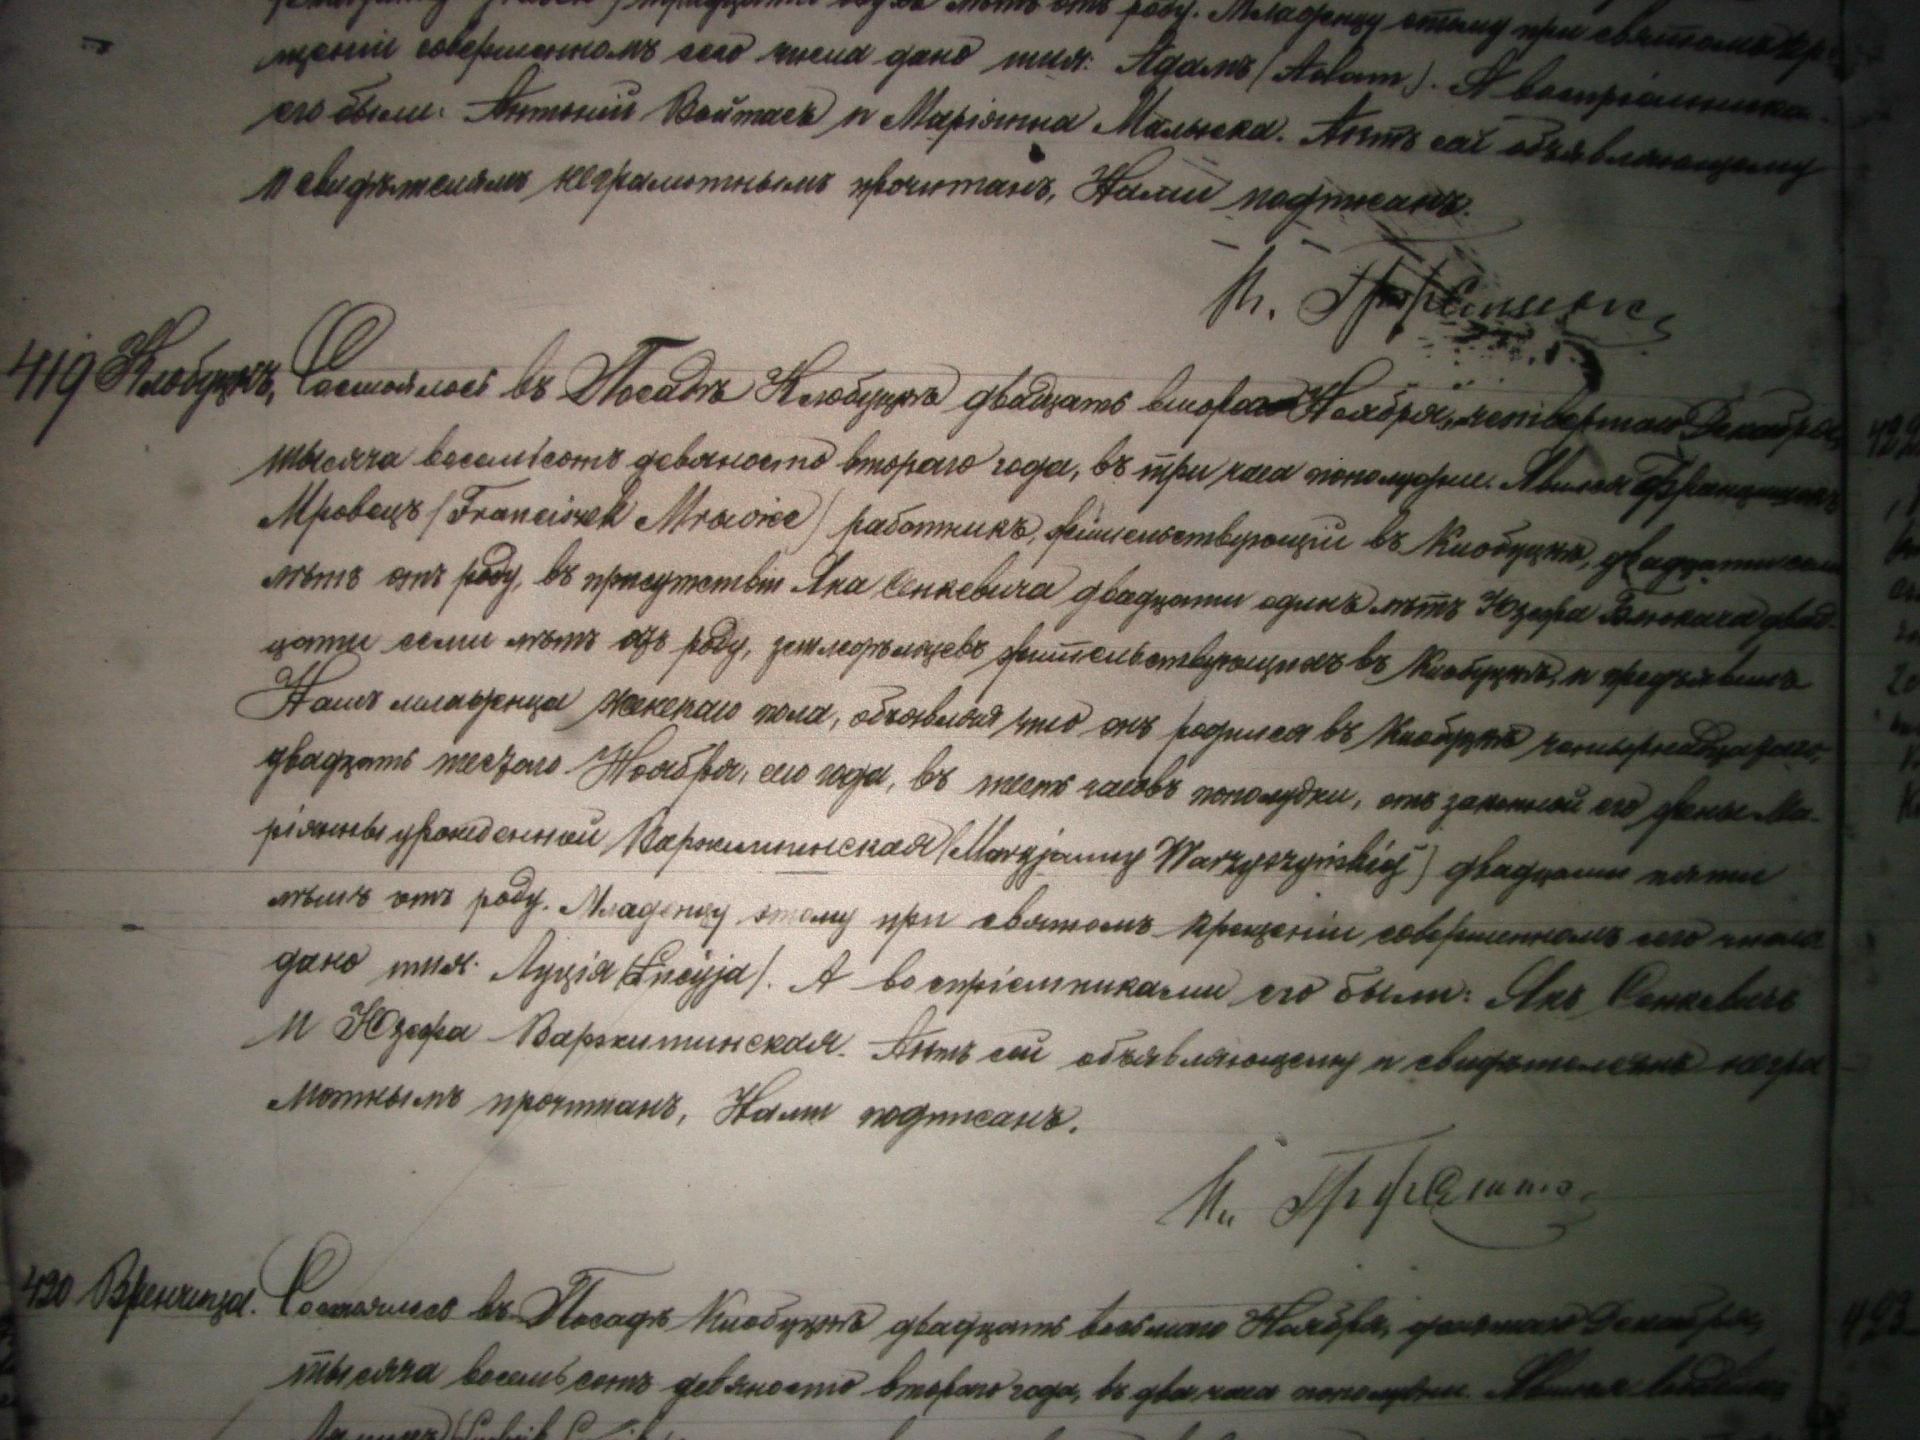 лѣтъ отъ роду. Младенцу этому при святомъ кре-
щеніи совершенномъ сего числа дано имя: Адамъ (Adam). А воспріемника-
его были: Антоній Войтасъ и Маріянна Мальска. Актъ сей объявляющему
и свидѣтелямъ неграмотнымъ прочитанъ, Нами подписанъ.
419 Клобуцкъ, Состоялось въ Посадѣ Клобуцкѣ двадцать втораго Ноября, четвертаго Декабря,
тысяча восемьсотъ девяносто втораго года, въ три часа пополудни. Явился Францишекъ
Мровецъ (Franciszek Mrowiec) работникъ, жительствующій въ Клобуцкѣ, двадцати семи
лѣтъ отъ роду, въ присутствіи Яна Сенкевича двадцати одинъ лѣтъ Юзефа двад-
цати семи лѣтъ отъ роду, земледѣльцевъ жительствующихъ въ Клобуцкѣ, и предъявилъ
Намъ младенца женскаго пола, объявляя что онъ родился въ Клобуцкѣ четырнадцатаго,
двадцать шестаго Ноября, сего года, въ шесть часовъ пополудни, отъ законной его жены Ма-
ріянны урожденной (Maryjanny) двадцати пяти
лѣтъ отъ роду. Младенцу этому при святомъ крещеніи совершенномъ сего числа
дано имя: Луція (Łucyja). А воспріемниками его были: Янъ Сенкевичъ
и Юзефа. Актъ сей объявляющему и свидѣтелямъ негра
мотнымъ прочитанъ, Нами подписанъ.
420 Вренчица. Состоялось въ Посадѣ Клобуцкѣ двадцать восьмаго Ноября, десятаго Декабря,
тысяча восемьсотъ девяносто втораго года, въ два часа пополудни. Явился